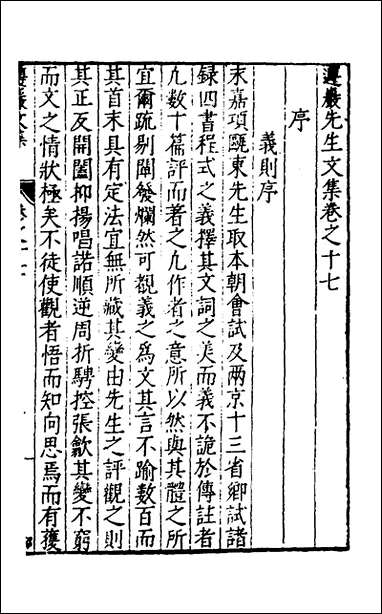 遵巖先生文集卷之十七
序
義則序
末嘉項甌東先生取本朝會試及兩京十三省鄉試諸
録四書程式之義擇其文詞之美而義不詭於傳註者
凢數十篇評而著之凢作者之意所以然與其體之所
宜爾䟽剔闡發爛然可觀義之爲文其言不踰數百而
其首末具有定法宜無所藏其變由先生之評觀之則
其正反開闔抑揚唱諾順逆周折騁控張歙其變不窮
而文之情狀極矣不徒使觀者悟而知向思焉而有獲